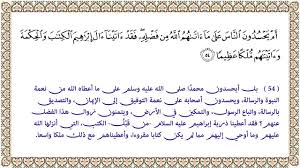 أَمۡ يَحۡسُدُونَ ٱلنَّاسَ عَلَىٰ مَآ ءَاتَىٰهُمُ ٱللَّهُ مِن فَضۡلِهِۦۖ فَقَدۡ ءَاتَيۡنَآ ءَالَ إِبۡرَٰهِيمَ ٱلۡكِتَٰبَ وَٱلۡحِكۡمَةَ
وَءَاتَيۡنَٰهُم مُّلۡكًا عَظِيمٗا ٥٤
(54) بل أيحسدون محمدًا صلى الله عليه وسلم على ما أعطاه الله من نعمة
النبوة والرسالة، ويحسدون أصحابه على نعمة التوفيق إلى الإيمان، والتصديق
بالرسالة، واتباع الرسول، والتمكين في الأرض، ويتمنون زوال هذا الفضل
عنهم؟ فقد أعطينا ذرية إبراهيم عليه السلام -من قَبْلُ- الكتب، التي أنزلها الله
عليهم وما أوحي إليهم مما لم يكن كتابا مقروءا، وأعطيناهم مع ذلك ملكا واسعا.